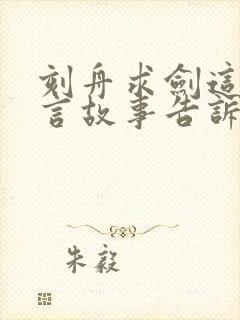 刻舟求劍這
言故事告訴
朱毅